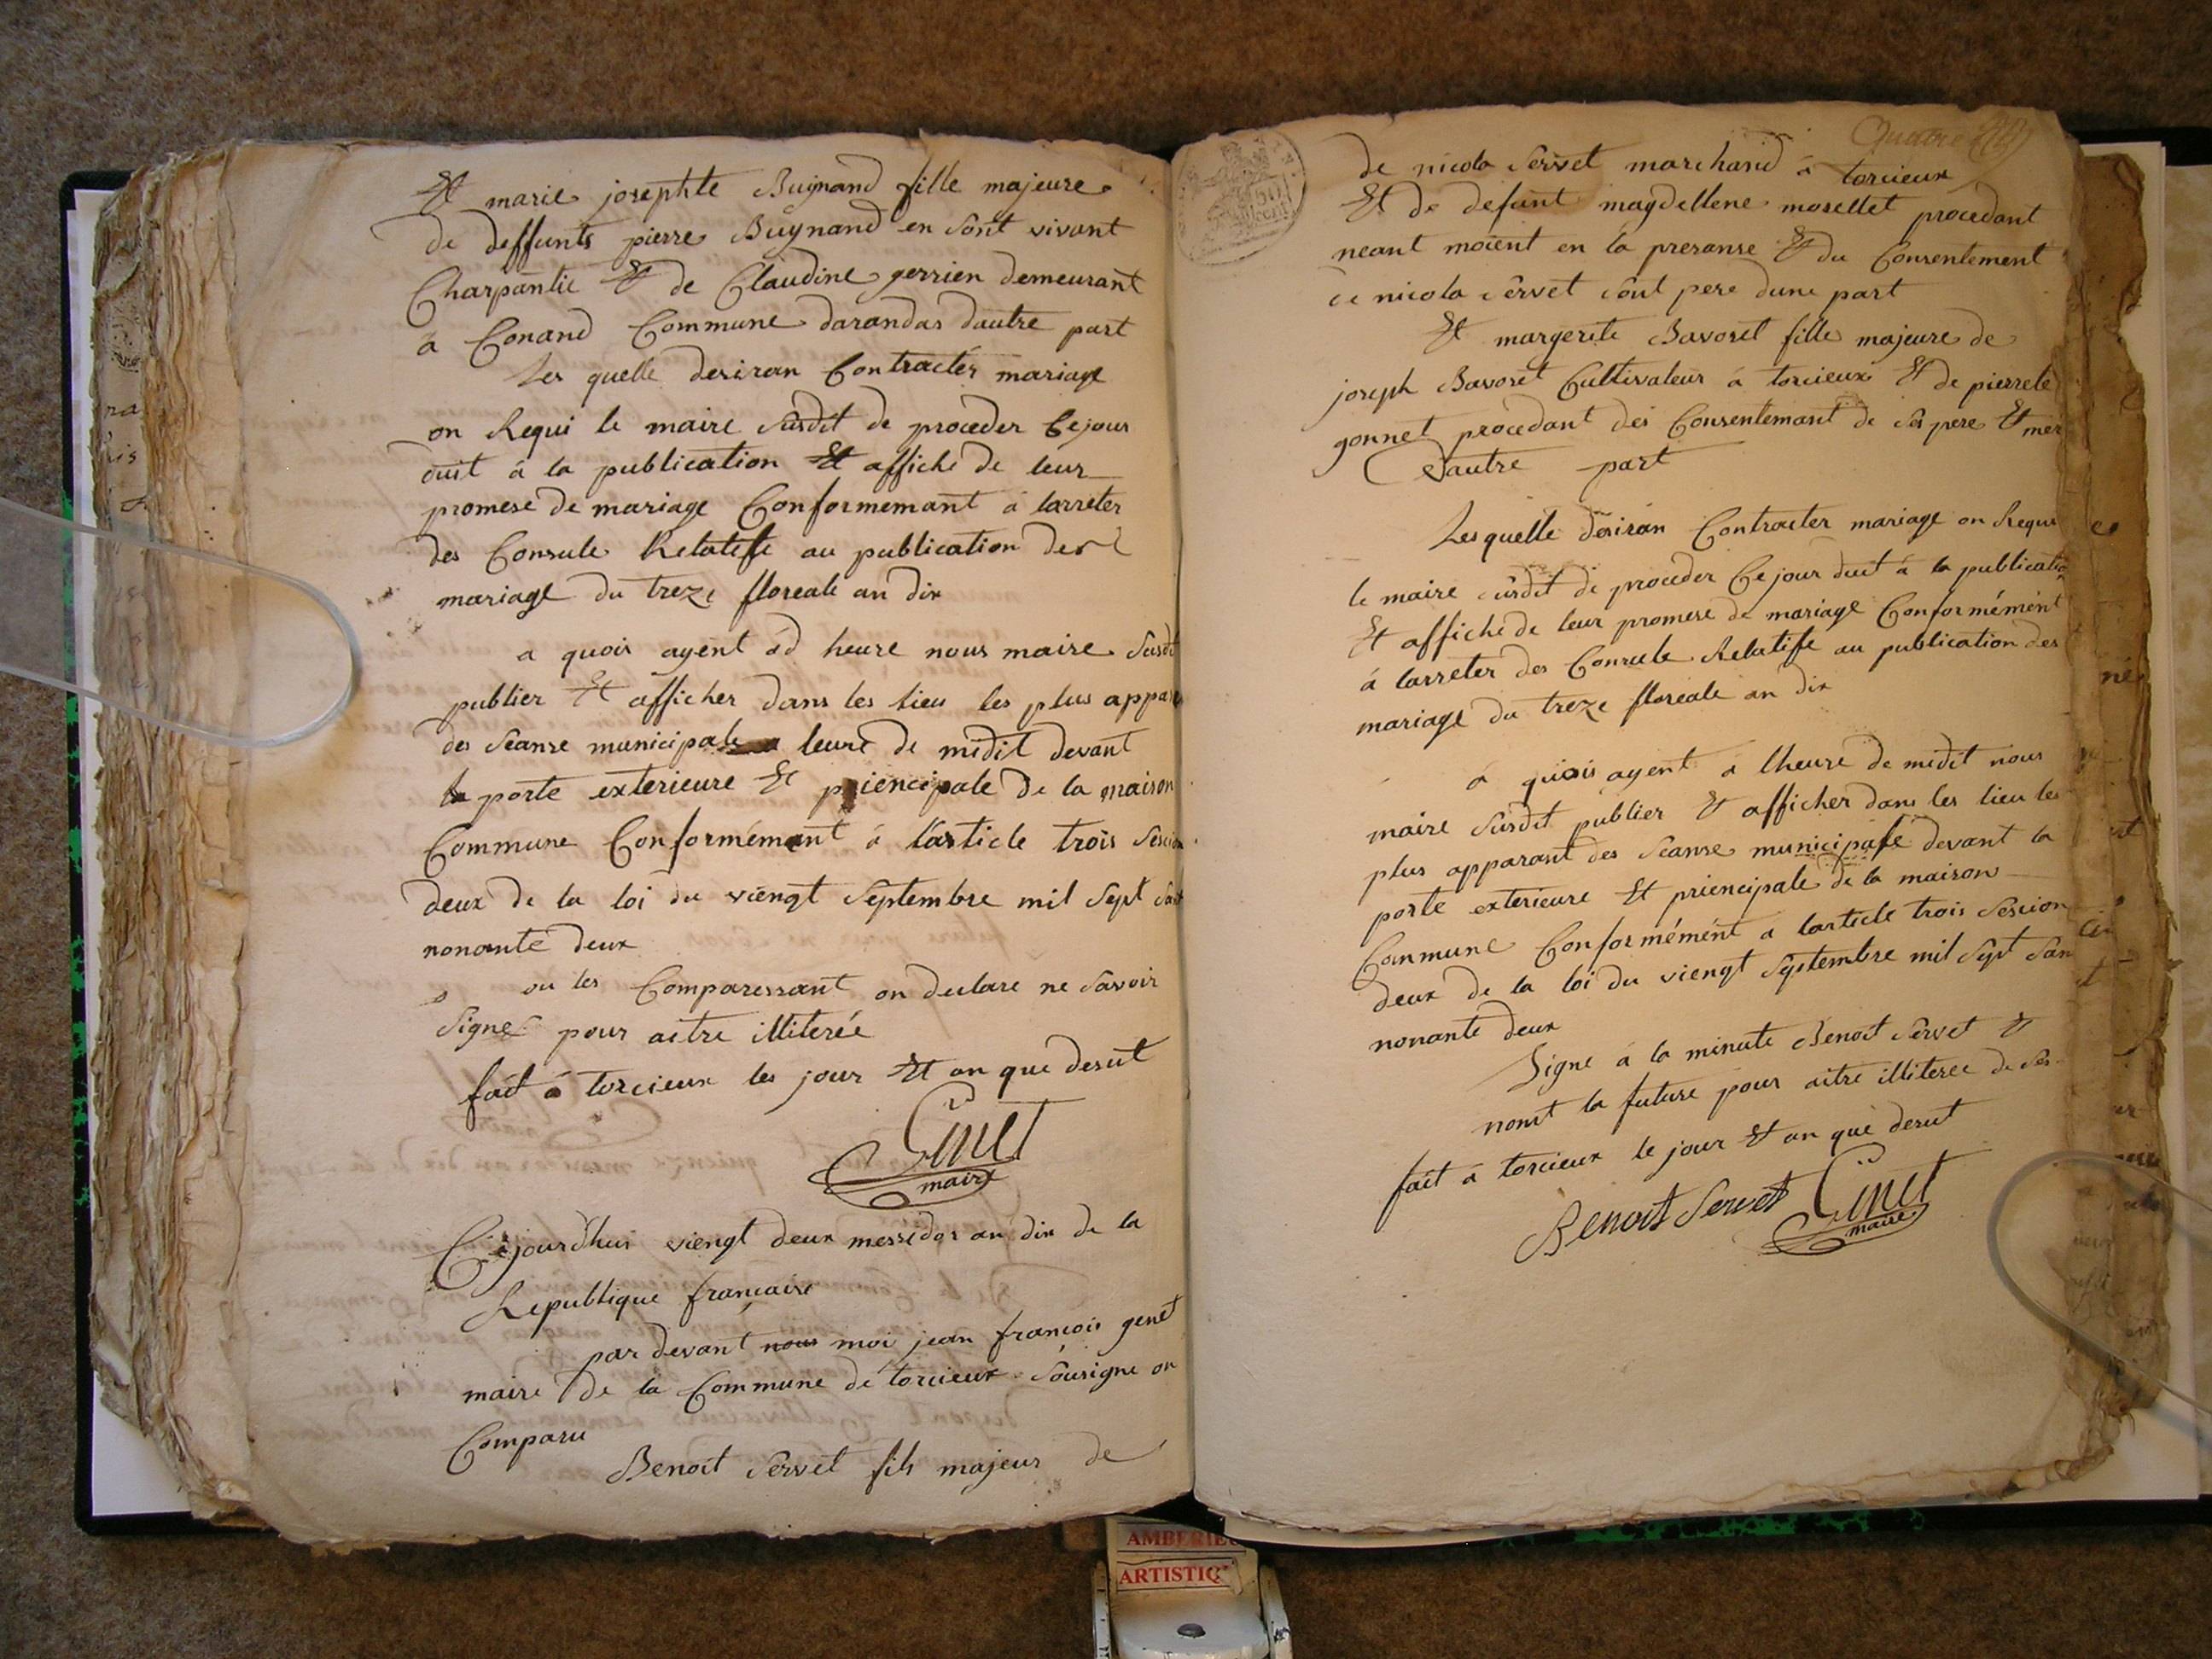 Et marie josephte Buynand fille majeure
de deffunts pierre Buynand en sont vivant
Charpantié Et de Claudine gerrien demeurant
à Conand Commune darandas dautre part
Les quelle desiran Contracter mariage
on Requi le maire susdit de proceder Cejour
duit à la publication Et affiche de leur
promese de mariage Conformemant à larreter
des Consule Relatife au publication des
mariage du treze floreale an dix
a quois ayent éd heure nous maire susdit
publier Et afficher dans les lieu les plus appar
des séanse municipale a leure de midit devant
la porte exterieure Et priencipale de la maison
Commune Conformémant à l'article trois sescion
deux de la loi du viengt septembre mil sept sant
nonante deux
ou les Comparessant on declare ne savoir
signer pour aitre illiterée
fait à torcieux les jour Et an que desut
Genet
maire
Cejourd'hui viengt deux messidor an dix de la
Republique française
par devant nous moi jean françois genet
maire de la Commune de torcieux sousigne on
Comparu
Benoit servet fils majeur de
Quatre
de nicola servet marchand à torcieux
Et de defunt magdellene mosellet procedant
neant moient en la presanse Et du Consentement
de nicola servet sont pere dune part
Et margerite Bavoret fille majeure de
joseph Bavoret Cultivateur à torcieux Et de pierrete
gonnet procedant dei Consentemant de ses pere Et mer
dautre part
Les quelle desiran Contracter mariage on Requi
le maire susdit de proceder Cejour duit à la publicatio
Et affiche de leur promese de mariage Conformément
à larreter des Consule Relatife au publication des
mariage du treze floreale an dix
à quois ayent a lheure de midit nous
maire susdit publier Et afficher dans les lieu les
plus apparant des séanse municipale devant la
porte exterieure Et priencipale de la maison
Commune Conformémént a larticle trois sescion
deux de la loi du viengt septembre mil sept san
nonante deux
Signe à la minute Benoit servet Et
nont la future pour aitre illiteree de ses
fait à torcieux le jour Et an que desut
Benoit Servet Genet
maire
AMBERIEU
ARTISTIQ